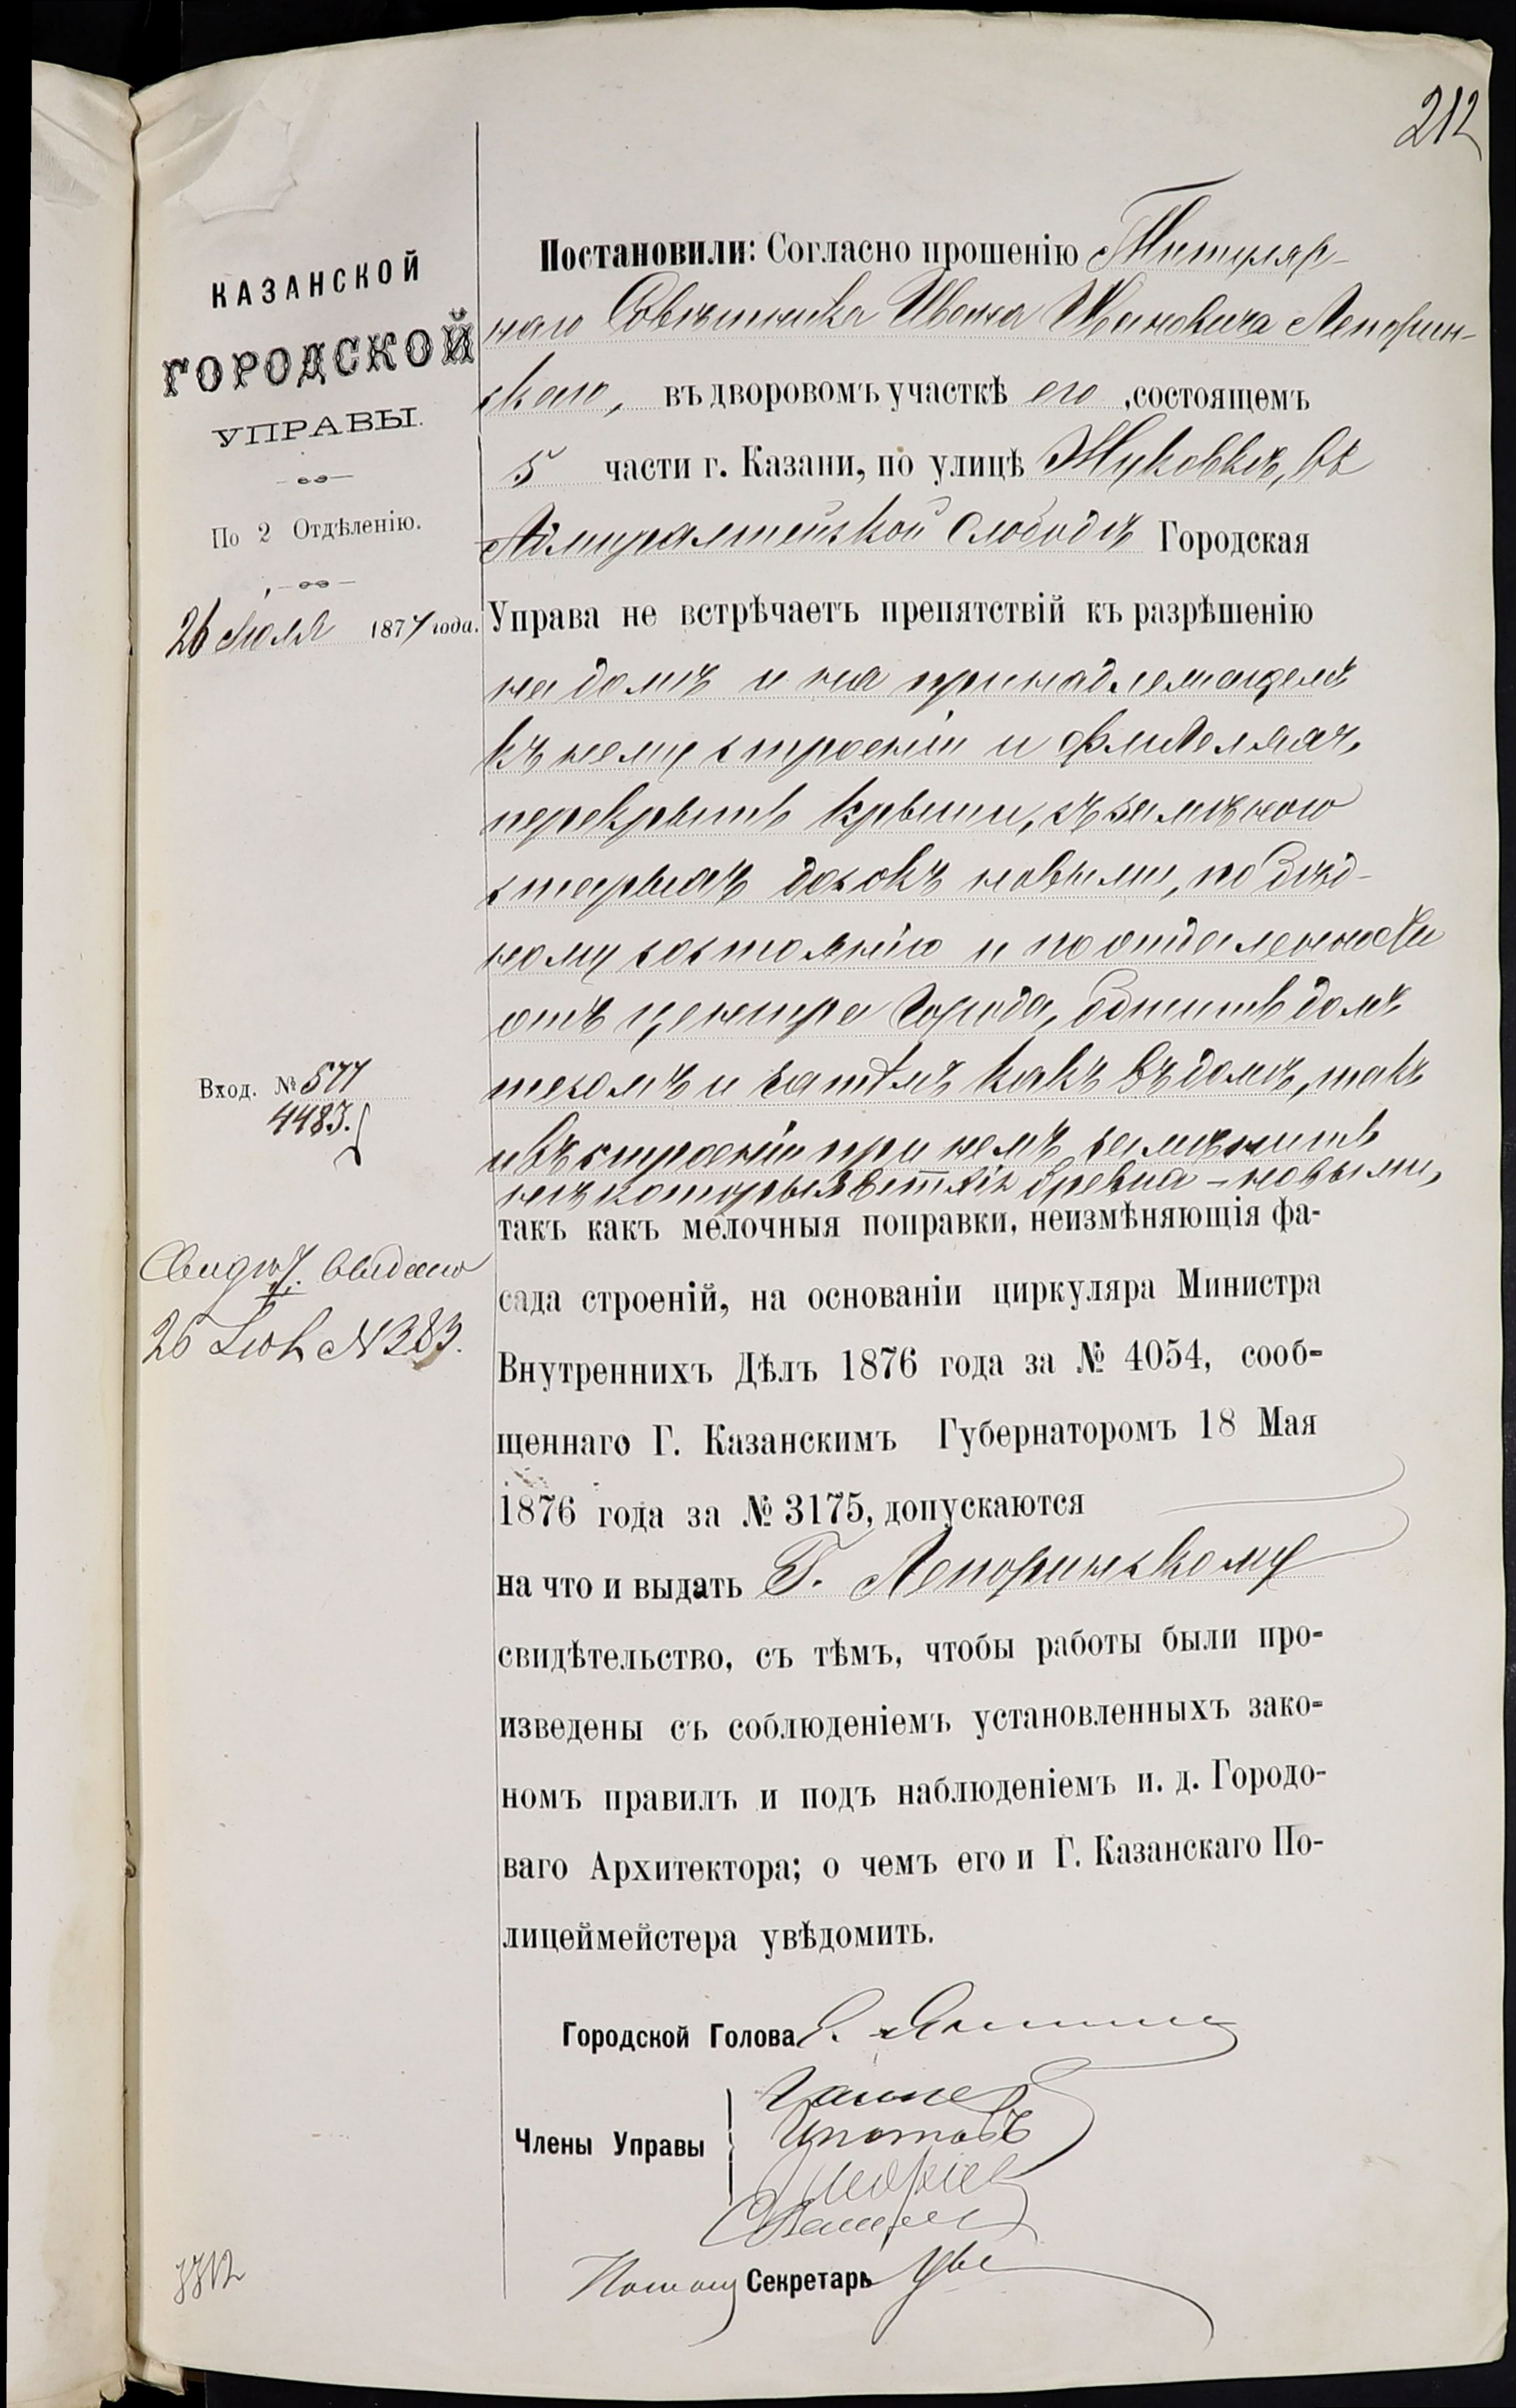 212
КАЗАНСКОЙ
ГОРОДСКОЙ
УПРАВЫ.
По 2 Отдѣленію.
26 Іюля 1877 года.
Вход. № 577
4483.
выдано
26 № 383.
Постановили: Согласно прошенію Титуляр-
наго Совѣтника Ивана Ивановича Лепорин-
скаго, въ дворовомъ участкѣ его, состоящемъ
5 части г. Казани, по улицѣ Жуковкѣ, въ
Адмиралтейской Слободѣ Городская
Управа не встрѣчаетъ препятствій къ разрѣшенію
на домѣ и на принадлежащемъ
къ нему строеніи и флигеляхъ,
перекрыть крыши, съ замѣною
старыхъ досокъ новыми, по бѣд-
ному состоянію и по отдаленности
отъ центра Города, обшить домъ
тесомъ и затѣмъ какъ въ домѣ, такъ
и въ строеніи при немъ замѣнить
нѣкоторыя ветхія бревна - новыми,
такъ какъ мелочныя поправки, неизмѣняющія фа-
сада строеній, на основаніи циркуляра Министра
Внутреннихъ Дѣлъ 1876 года за № 4054, сооб-
щеннаго Г. Казанскимъ Губернаторомъ 18 Мая
1876 года за № 3175, допускаются
на что и выдать Г. Лепоринскому
свидѣтельство, съ тѣмъ, чтобы работы были про-
изведены съ соблюденіемъ установленныхъ зако-
номъ правилъ и подъ наблюденіемъ и. д. Городо-
ваго Архитектора; о чемъ его и Г. Казанскаго По-
лицеймейстера увѣдомить.
Городской Голова
Члены Управы
Секретарь